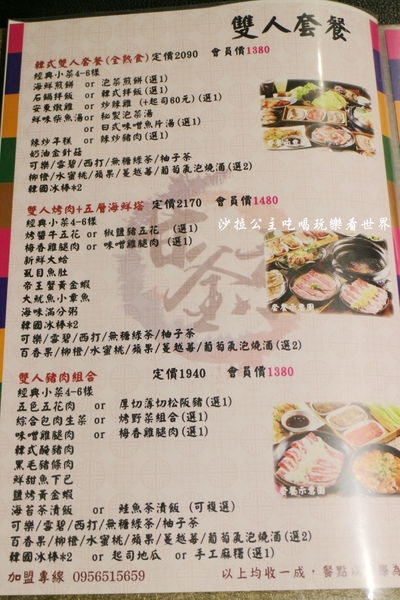 雙人套餐
韓式雙人套餐(全熟食)定價2090 會員價1380
經典小菜4-6樣
海鮮煎餅 or 泡菜煎餅(選1)
石鍋拌飯 or 韓式拌飯(選1)
安東燉雞 or 炒辣雞 (+起司60元)(選1)
鮮味柴魚湯or 秘製泡菜湯
or 日式味噌魚片湯(選1)
辣炒年糕 or 辣炒豬肉(選1)
奶油金針菇
可樂/雪碧/西打/無糖綠茶/柚子茶
柳橙/水蜜桃/蘋果/蔓越莓/葡萄氣泡燒酒(選2)
韓國冰棒*2
雙人烤肉+五層海鮮塔 定價2170 會員價1480
沙拉公主吃喝玩樂看世界
經典小菜4-6樣
烤醬牛五花 or 椒鹽豬五花 (選1)
梅香雞腿肉 or 味噌雞腿肉(選1)
新鮮大蛤
虱目魚肚
帝王蟹黃金蝦
大魷魚小章魚
海味滿分粥
韓國冰棒*2
可樂/雪碧/西打/無糖綠茶/柚子茶
百香果/柳橙/水蜜桃/蘋果/蔓越莓/葡萄氣泡燒酒(選2)
套餐示意圖
雙人豬肉組合 定價1940 會員價1380
經典小菜4-6樣
五色五花肉 or 厚切薄切松阪豬(選1)
綜合包肉生菜 or 烤野菜組合(選1)
味噌雞腿肉 or 梅香雞腿肉(選1)
韓式醃豬肉
黑毛豬條肉
鮮甜魚下巴
鹽烤黃金蝦
海苔茶漬飯 or 鮭魚茶漬飯 (可複選)
可樂/雪碧/西打/無糖綠茶/柚子茶
百香果/柳橙/水蜜桃/蘋果/蔓越莓/葡萄氣泡燒酒(選2)
韓國冰棒*2 or 起司地瓜 or 手工麻糬(選1)
套餐示意圖
加盟專線 0956515659 以上均收一成，餐點以